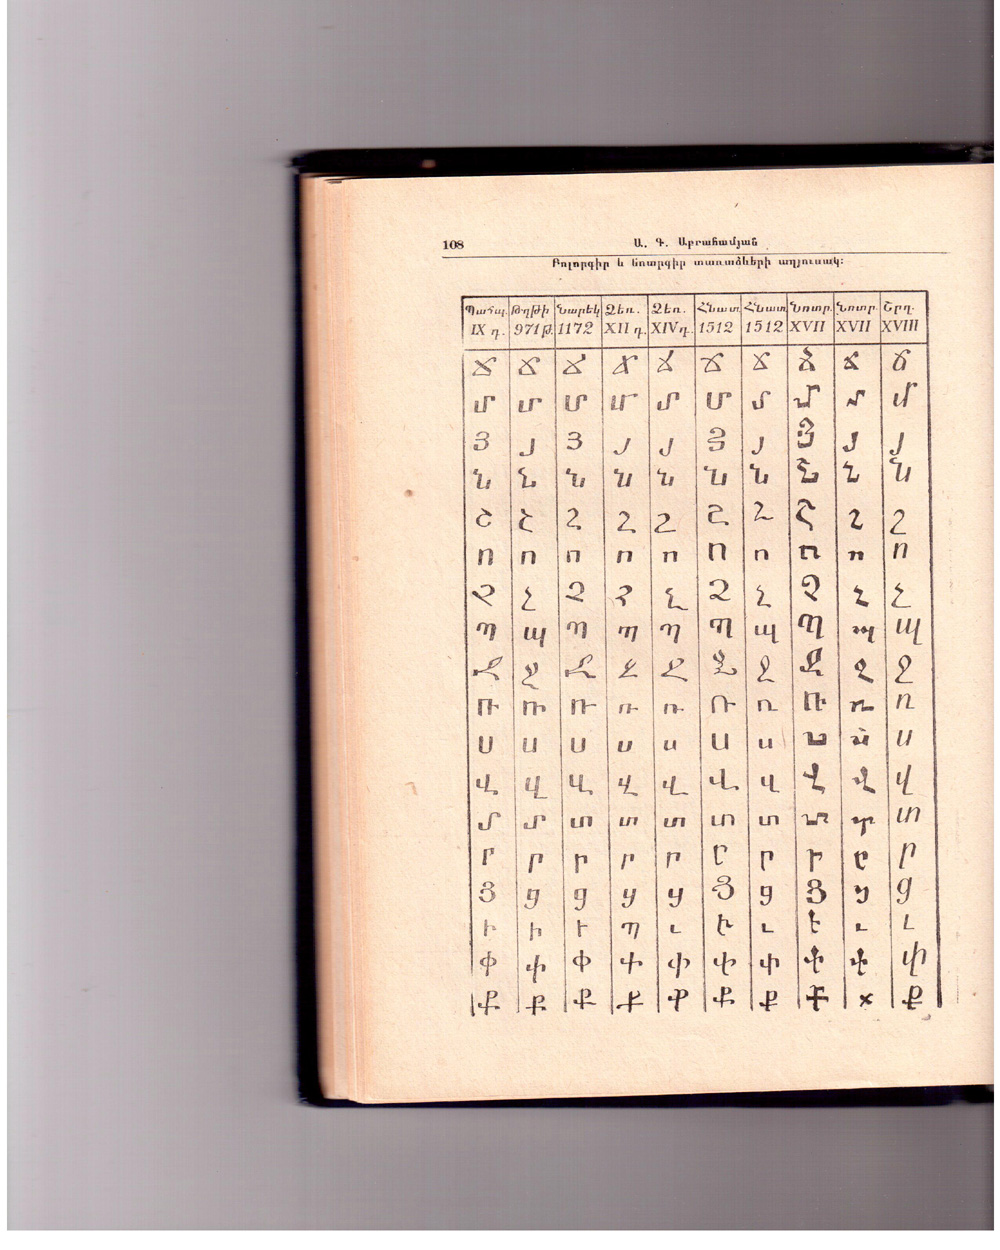 108
Ա. Գ. Աբրահամյան
Բոլորգիր և նոտրգիր տառաձևերի աղյուսակ:
Պահպ. Թղթի Նարեկ Ձեռ. Ձեռ. Հնատ. Հնատ. Նոտր. Նոտր. Շղգ.
IX դ. 971 թ. 1172 XII դ. XIV դ. 1512 1512 XVII XVII XVIII
ճ ճ ճ ճ ճ ճ ճ ճ ճ ճ
մ մ մ մ մ մ մ մ մ մ
Յ յ Յ յ յ Յ յ Յ յ յ
ն ն ն ն ն ն ն ն ն ն
շ շ շ շ շ շ շ շ շ շ
ո ո ո ո ո ո ո ո ո ո
չ չ չ չ չ չ չ չ չ չ
պ պ պ պ պ պ պ պ պ պ
ջ ջ ջ ջ ջ ջ ջ ջ ջ ջ
ռ ռ ռ ռ ռ ռ ռ ռ ռ ռ
ս ս ս ս ս ս ս ս ս ս
վ վ վ վ վ վ վ վ վ վ
տ տ տ տ տ տ տ տ տ տ
ր ր ր ր ր ր ր ր ր ր
ց ց ց ց ց ց ց ց ց ց
ւ ւ ւ ւ ւ ւ ւ ւ ւ
փ փ փ փ փ փ փ փ փ փ
ք ք ք ք ք ք ք ք ք ք